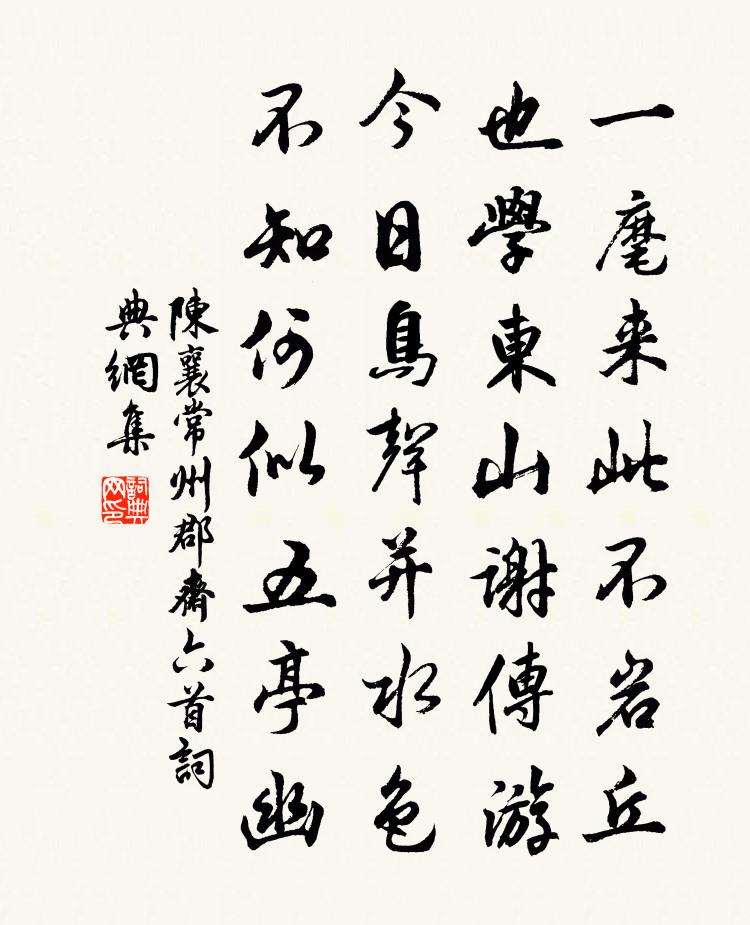 一麾来此不岩丘
也學東山謝傳游
今日鳥聲并水色
不知何似五亭幽
陳襄常州郡齋六首詞
典網集
詞典
网印